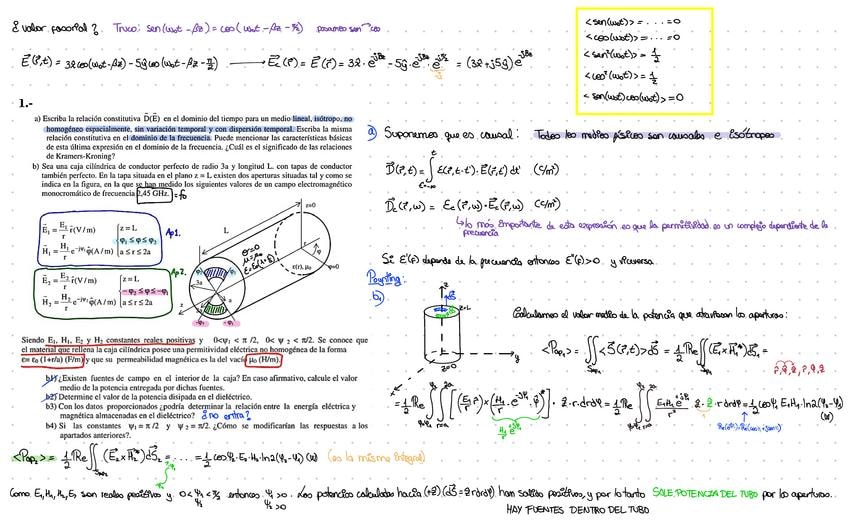 ¿ valor fasorial? Truco: sen(ω₀t - βz) = cos(ω₀t - βz - π/2) pasamos sen → cos
E⃗(r⃗,t) = 3x̂ cos(ω₀t - βz) - 5ŷ cos(ω₀t - βz - π/2) → E⃗c(r⃗) = E⃗(r⃗) =
<sen(ω₀t)> = .... = 0
<cos(ω₀t)> = .... = 0
<sen²(ω₀t)> = 1/2
<cos²(ω₀t)> = 1/2
<sen(ω₀t)cos(ω₀t)> = 0
1.-
a) Escriba la relación constitutiva D̄(Ē) en el dominio del tiempo para un medio lineal, isótropo, no
homogéneo espacialmente, sin variación temporal y con dispersión temporal. Escriba la misma
relación constitutiva en el dominio de la frecuencia. Puede mencionar las características básicas
de esta última expresión en el dominio de la frecuencia. ¿Cuál es el significado de las relaciones
de Kramers-Kroning?
b) Sea una caja cilíndrica de conductor perfecto de radio 3a y longitud L. con tapas de conductor
también perfecto. En la tapa situada en el plano z = L existen dos aperturas situadas tal y como se
indica en la figura, en la que se han medido los siguientes valores de un campo electromagnético
monocromático de frecuencia 2,45 GHz. = f₀
Ē₁ = E₁/r r̂ (V/m) z = L
-φ₁ ≤ φ ≤ φ₂
H̄₁ = H₁/r e^-jψ₁ φ̂ (A/m) a ≤ r ≤ 2a
Ap1.
Ē₂ = E₂/r r̂ (V/m) z = L
-φ₂ ≤ φ ≤ -φ₁
H̄₂ = H₂/r e^-jψ₂ φ̂ (A/m) a ≤ r ≤ 2a
Ap2.
z=0
L
σ=0
μ=μ₀
3a
a
r
φ
ε(r), μ₀
φ=0
z
-φ₂
-φ₁
Siendo E₁, H₁, E₂ y H₂ constantes reales positivas y 0<ψ₁ < π /2, 0< ψ ₂ < π/2. Se conoce que
el material que rellena la caja cilíndrica posee una permitividad eléctrica no homogénea de la forma
ε= ε₀ (1+r/a) (F/m) y que su permeabilidad magnética es la del vacío μ₀ (H/m).
b1) ¿Existen fuentes de campo en el interior de la caja? En caso afirmativo, calcule el valor
medio de la potencia entregada por dichas fuentes.
b2) Determine el valor de la potencia disipada en el dieléctrico.
b3) Con los datos proporciones ¿podría determinar la relación entre la energía eléctrica y
magnética almacenadas en el dieléctrico? ¿no entra?
b4) Si las constantes ψ₁ = π /2 y ψ ₂ = π/2. ¿Cómo se modificarían las respuestas a los
apartados anteriores?.
a) Suponemos que es causal: Todos los medios físicos son causales e isótropos.
D⃗(r⃗,t) = ∫ ε(r⃗,t-t')·E⃗(r⃗,t') dt' (C/m²)
D⃗c(r⃗,ω) = εc(r⃗,ω)·E⃗c(r⃗,ω) (C/m²)
↳ lo más importante de esta expresión es que la permitividad es un complejo dependiente de la
frecuencia
Si ε'(f) depende de la frecuencia entonces ε''(f)>0. y viceversa.
Poynting:
b₁)
z
z=L
y
z=0
x
Calculamos el valor medio de la potencia que atraviesan las aperturas:
<Pap₁> = ∬ <S⃗(r⃗,t)> dS⃗ = 1/2 Re ∬ (E⃗₁ × H⃗₁*) dS⃗₁ =
= 1/2 Re ∫∫ [(E₁/r r̂) × (H₁/r · e^-jψ₁ · φ̂)*] · ẑ · r·drdφ = ... = 1/2 Re ∫∫ E₁H₁/r² e^jψ₁ ẑ · ẑ · r drdφ = 1/2 cosψ₁ E₁·H₁·ln2(φ₂-φ₁)
(W)
<Pap₂> = 1/2 Re ∬ (E⃗₂ × H⃗₂*) dS⃗₂ = .... = 1/2 cosψ₂·E₂·H₂·ln2(φ₂-φ₁) (W) (es la misma integral)
Como E₁,H₁,H₂,E₂ son reales positivos y 0<ψ₁<π/2 entonces ψ₁>0. Las potencias calculadas hacia (+ẑ) (dS⃗=ẑ rdrdφ) han salido positivas, y por lo tanto SALE POTENCIA DEL TUBO por las aperturas..
HAY FUENTES DENTRO DEL TUBO